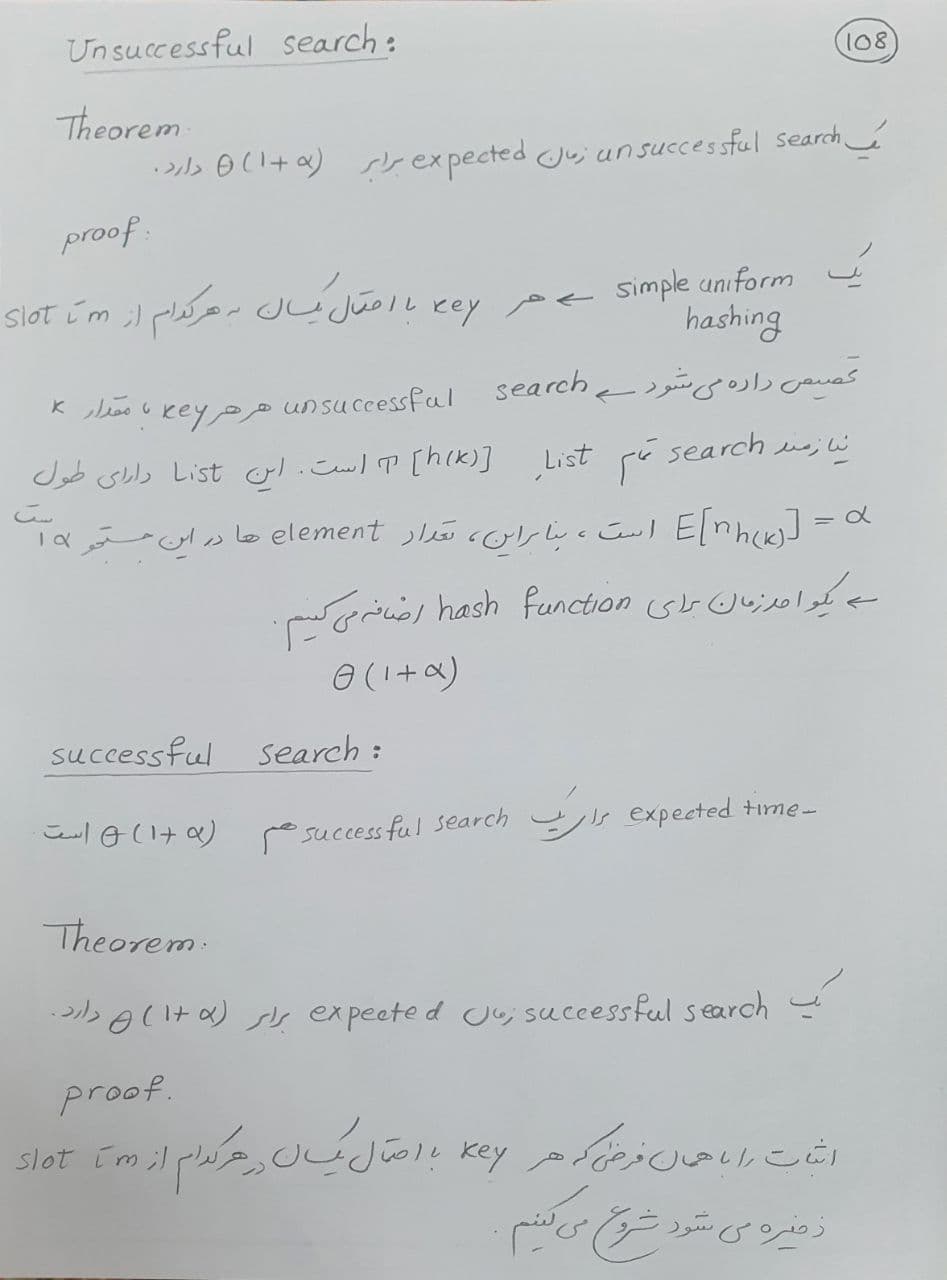 Unsuccessful search:
108
Theorem.
یک unsuccessful search زمان expected برابر θ(1+α) دارد.
proof:
یک simple uniform hashing ← هر key با احتمال یکسان به هرکدام از m تا slot
تخصیص داده می شود ← unsuccessful search هر key با مقدار k
نیازمند search تمام List, T[h(k)] است. این List دارای طول
E[n_{h(k)}] = α است، بنابراین، تعداد element ها در این جستجو α است
← یک واحد زمان برای hash function اضافه می کنیم.
θ(1+α)
successful search:
expected time برای یک successful search هم θ(1+α) است
Theorem.
یک successful search زمان expected برابر θ(1+α) دارد.
proof.
اثبات را با همان فرض که هر key با احتمال یکسان در هرکدام از m تا slot
ذخیره می شود شروع می کنیم.